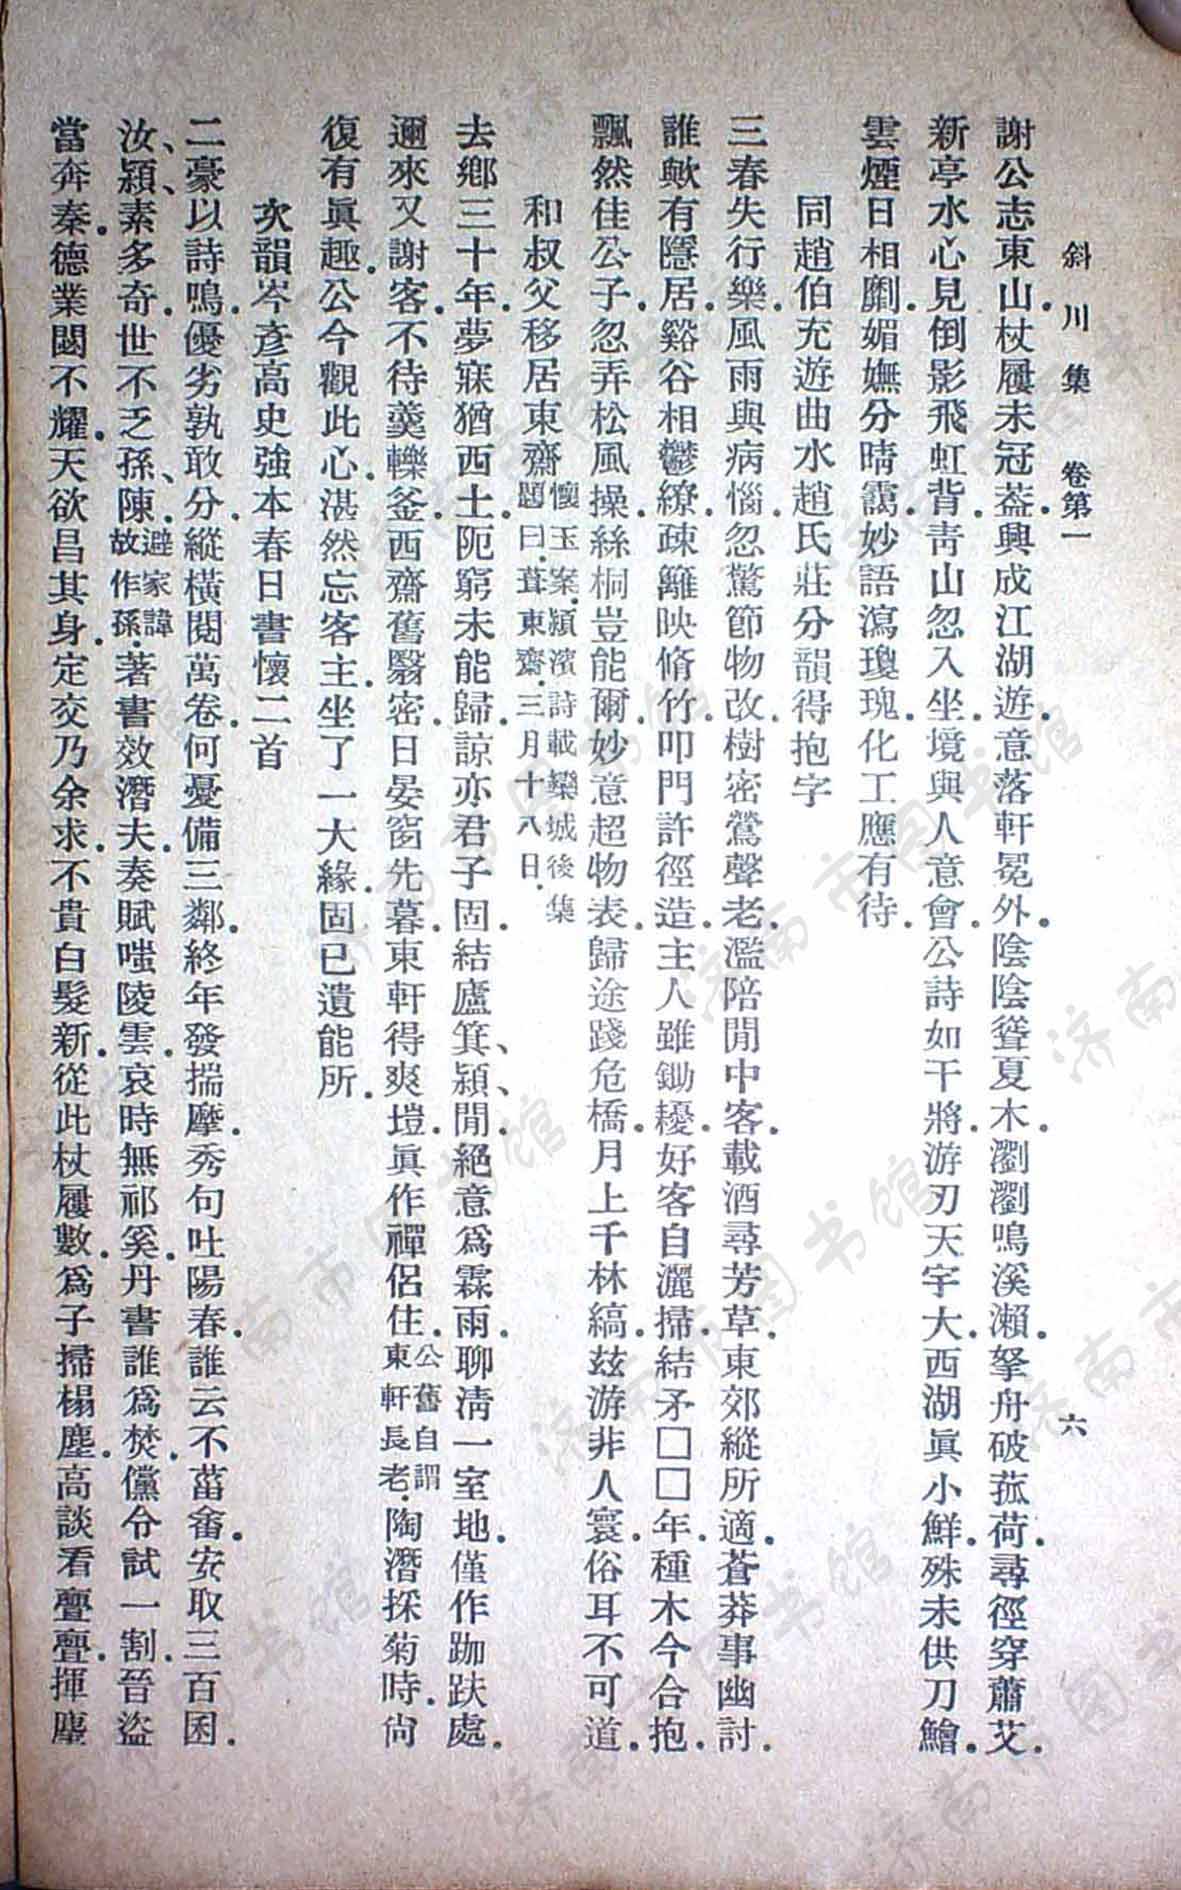 斜川集　卷第一　六
謝公志東山.杖屨未冠蓋.興成江湖遊.意落軒冕外.陰陰聳夏木.瀏瀏鳴溪瀨.拏舟破菰荷.尋徑穿蕭艾.
新亭水心見.倒影飛虹背.靑山忽入坐.境與人意會.公詩如干將.游刃天宇大.西湖眞小鮮.殊未供刀鱠.
雲煙日相劘.媚嫵分晴靄.妙語瀉瓊瑰.化工應有待.
同趙伯充遊曲水趙氏莊分韻得抱字
三春失行樂.風雨與病惱.忽驚節物改.樹密鶯聲老.濫陪閒中客.載酒尋芳草.東郊縱所適.蒼莽事幽討.
誰歟有隱居.谿谷相鬱繚.疎籬映脩竹.叩門許徑造.主人雖鋤耰.好客自灑掃.結矛□□年.種木今合抱.
飄然佳公子.忽弄松風操.絲桐豈能爾.妙意超物表.歸途踐危橋.月上千林縞.玆游非人寰.俗耳不可道.
和叔父移居東齋懷玉案.潁濱詩載欒城後集題曰.葺東齋.三月十八日.
去鄉三十年.夢寐猶西土.阨窮未能歸.諒亦君子固.結廬箕、潁、閒.絕意爲霖雨.聊淸一室地.僅作跏趺處.
邇來又謝客.不待羹轢釜.西齋舊翳密.日晏窗先暮.東軒得爽塏.眞作禪侶住.公舊自謂東軒長老.陶潛採菊時.尙
復有眞趣.公今觀此心.湛然忘客主.坐了一大緣.固已遺能所.
次韻岑彥高史強本春日書懷二首
二豪以詩鳴.優劣孰敢分.縱橫閱萬卷.何憂備三鄰.終年發揣摩.秀句吐陽春.誰云不菑畬.安取三百囷.
汝、潁、素多奇.世不乏孫、陳.避家諱故作孫.著書效潛夫.奏賦嗤陵雲.哀時無祁奚.丹書誰爲焚.儻令試一割.晉盜
當奔秦.德業闇不耀.天欲昌其身.定交乃余求.不貴白髮新.從此杖屨數.爲子掃榻塵.高談看亹亹.揮麈